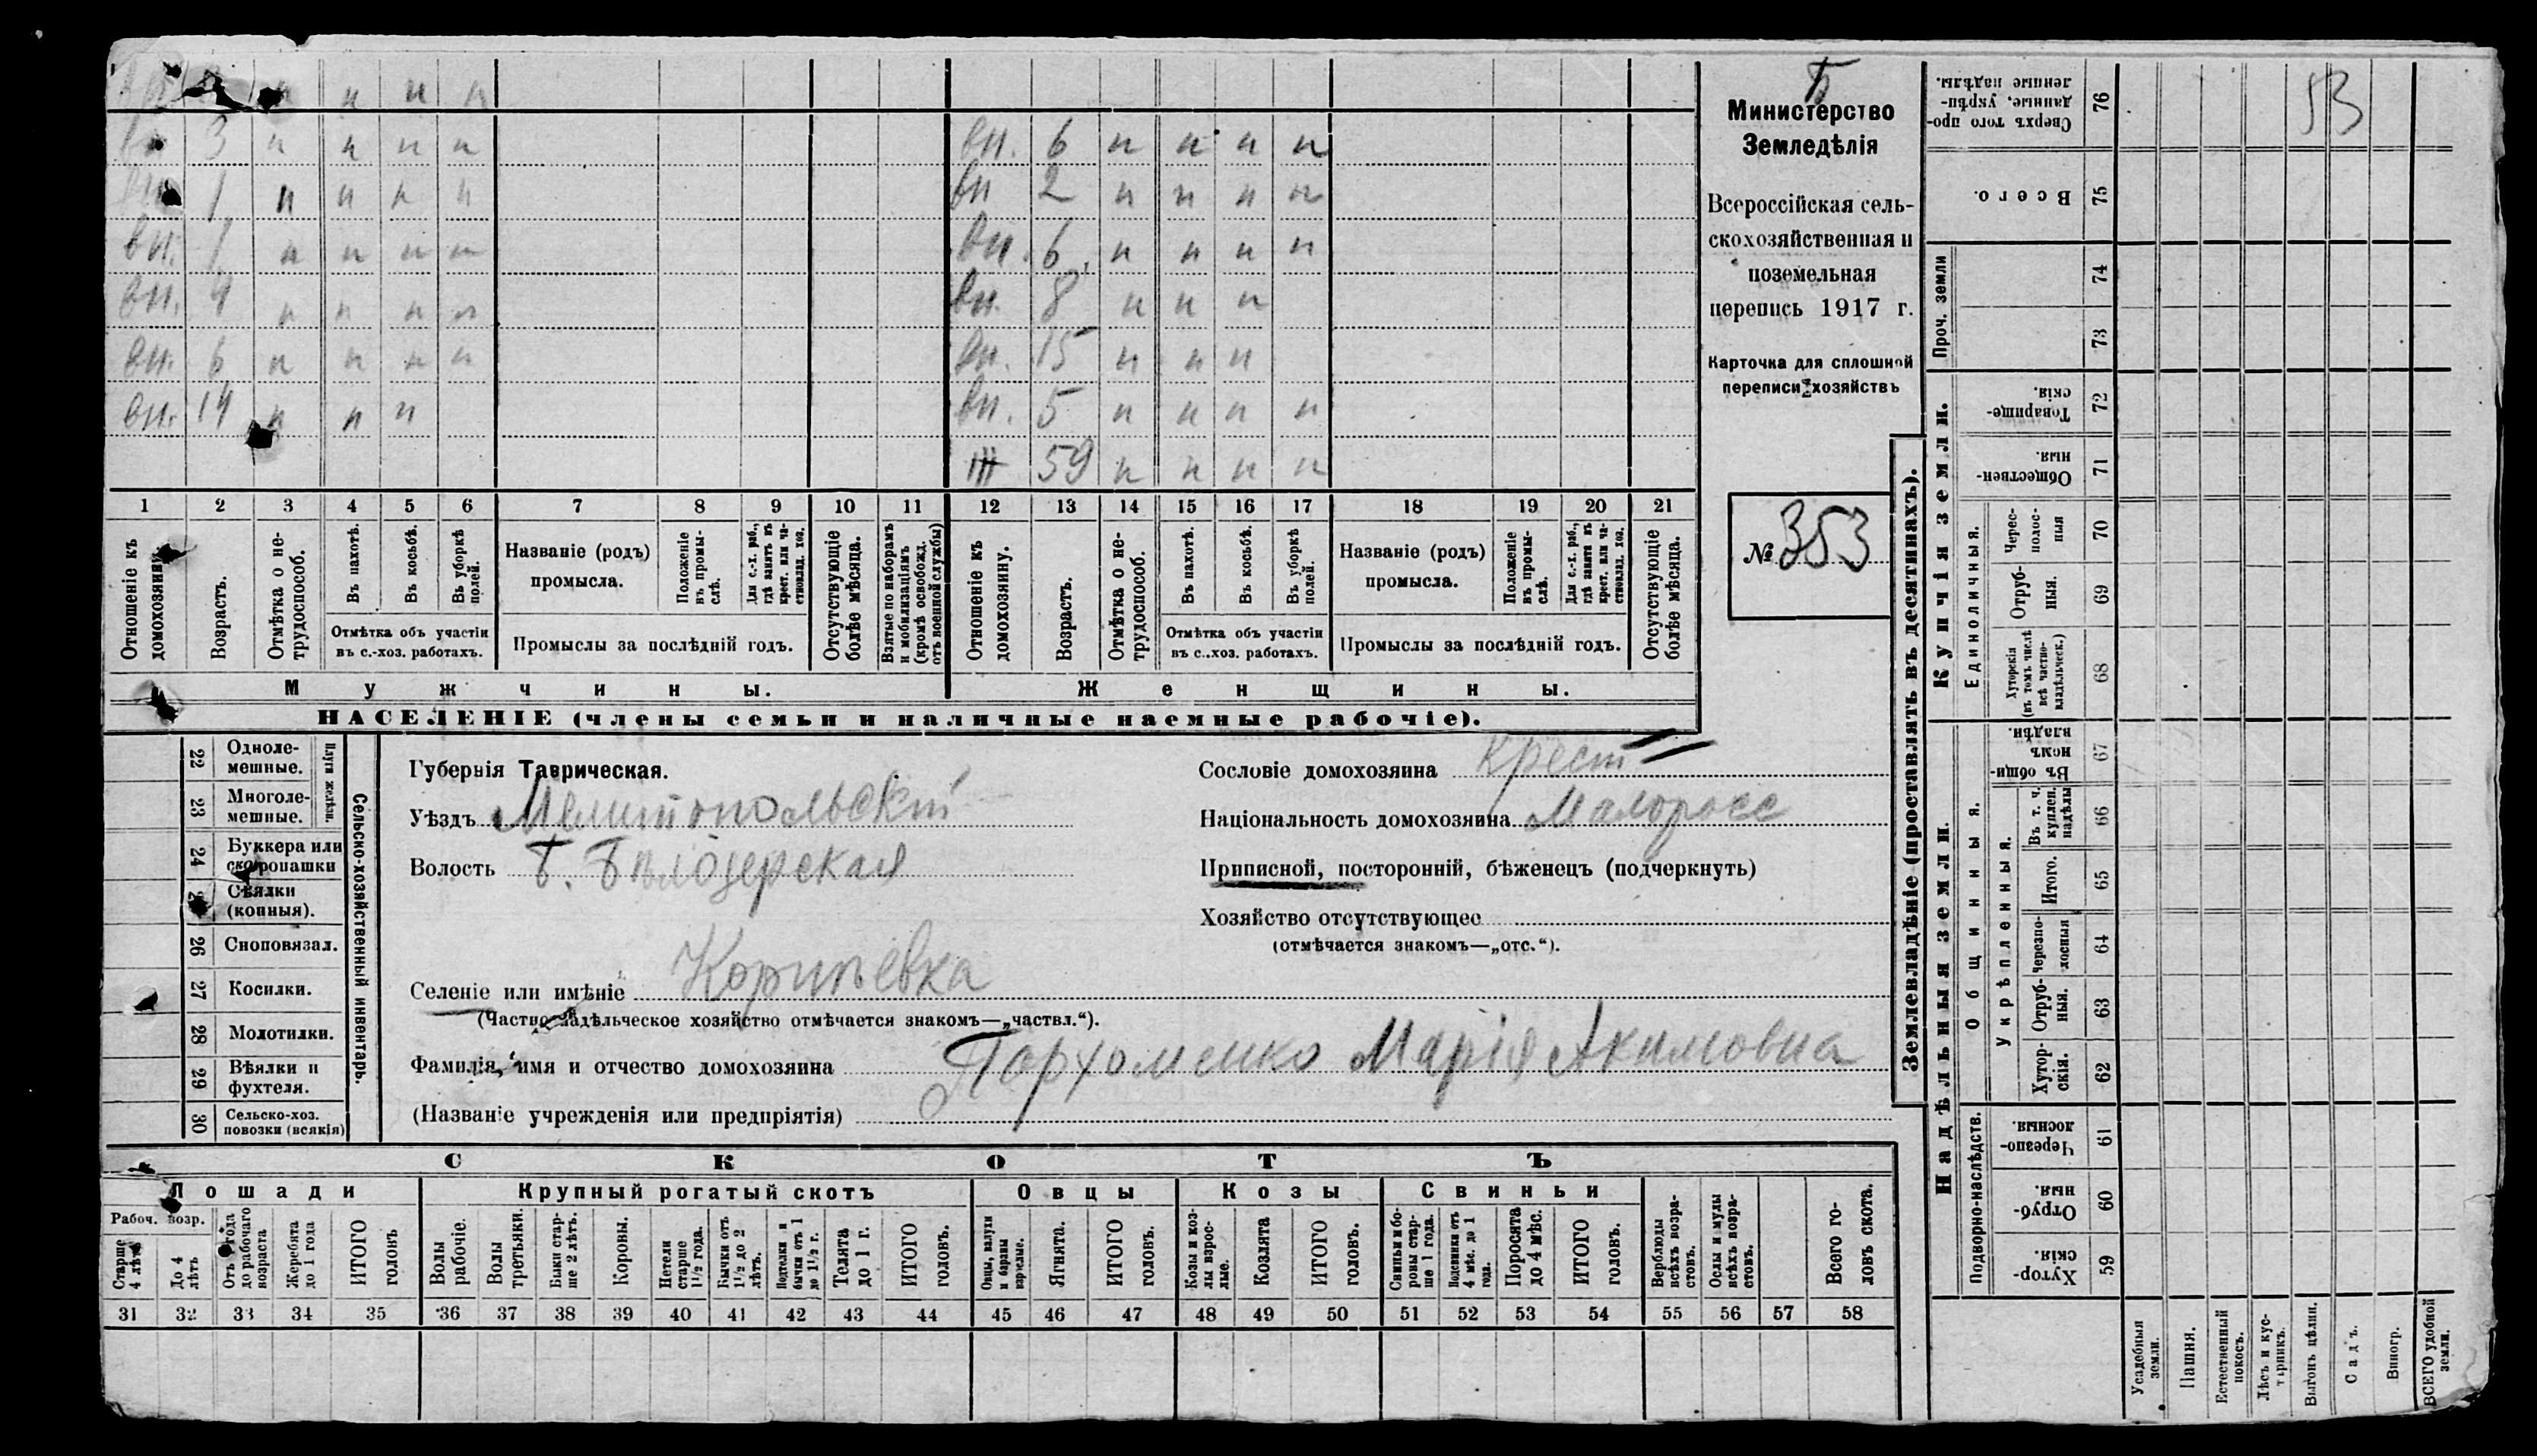 вн 3 н н н н
вн 1 н н н н
вн. 1 н н н н
вн. 4 н н н н
вн. 6 н н н н
вн. 14 н н н
вн. 6 н н н н
вн 2 н н н н
вн. 6 н н н н
вн. 8 н н н
вн. 15 н н н
вн. 5 н н н н
59 н н н н
1 2 3 4 5 6 7 8 9 10 11 12 13 14 15 16 17 18 19 20 21
Отношеніе къ домохозяину.
Возрастъ.
Отмѣтка о не-
трудоспособ.
Въ пахотѣ.
Въ косьбѣ.
Въ уборкѣ
полей.
Отмѣтка объ участіи
въ с.-хоз. работахъ.
Названіе (родъ)
промысла.
Положеніе
въ промы-
слѣ.
Для с.-х. раб.,
гдѣ занятъ въ
крест. или ча-
стновлад. хоз.
Промыслы за послѣдній годъ.
Отсутствующіе
болѣе мѣсяца.
Взятые по наборамъ
и мобилизаціямъ
(кромѣ освобожд.
отъ военной службы)
Отношеніе къ
домохозяину.
Возрастъ.
Отмѣтка о не-
трудоспособ.
Въ пахотѣ.
Въ косьбѣ.
Въ уборкѣ
полей.
Отмѣтка объ участіи
въ с..хоз. работахъ.
Названіе (родъ)
промысла.
Положеніе
въ промы-
слѣ.
Для с.-х. раб.,
гдѣ занятъ въ
крест. или ча-
стновлад. хоз.
Промыслы за послѣдній годъ.
Отсутствующіе
болѣе мѣсяца.
Мужчины.
Женщины.
НАСЕЛЕНІЕ (члены семьи и наличные наемные рабочіе).
Министерство
Земледѣлія
Всероссійская сель-
скохозяйственная и
поземельная
перепись 1917 г.
Карточка для сплошной
переписи хозяйствъ
№ 353
22 Одноле-
мешные.
23 Многоле-
мешные.
Плуги желѣзн.
24 Буккера или
скоропашки
Сѣялки
(конныя).
26 Сноповязал.
27 Косилки.
28 Молотилки.
29 Вѣялки и
фухтеля.
30 Сельско-хоз.
повозки (всякія)
Сельско-хозяйственный инвентарь.
Губернія Таврическая.
Уѣздъ Мелитопольскій
Волость Б. Бѣлозерская
Селеніе или имѣніе
(Частновладѣльческое хозяйство отмѣчается знакомъ—„частвл.“).
Фамилія, имя и отчество домохозяина Пархоменко Марія Акимовна
(Названіе учрежденія или предпріятія)
Сословіе домохозяина крест
Національность домохозяина Малоросс
Приписной, посторонній, бѣженецъ (подчеркнуть)
Хозяйство отсутствующее
(отмѣчается знакомъ—„отс.“).
СКОТЪ
Лошади
Крупный рогатый скотъ
Овцы
Козы
Свиньи
Рабоч. возр.
Старше
4 лѣтъ
До 4
лѣтъ
Отъ 1 года
до рабочаго
возраста
Жеребята
до 1 года
ИТОГО
головъ
Волы
рабочіе.
Волы
третьяки.
Быки стар-
ше 2 лѣтъ.
Коровы.
Нетели
старше
1½ года.
Бычки отъ
1½ до 2
лѣтъ.
Подтелки и
бычки отъ 1
до 1½ г.
Телята
до 1 г.
ИТОГО
головъ.
Овцы, валухи
и бараны
взрослые.
Ягнята.
ИТОГО
головъ.
Козы и коз-
лы взрос-
лые.
Козлята
ИТОГО
головъ.
Свиньи и бо-
ровы стар-
ше 1 года.
Подсвинки отъ
4 мѣс. до 1
года.
Поросята
до 4 мѣс.
ИТОГО
головъ.
Верблюды
всѣхъ возра-
стовъ.
Ослы и мулы
всѣхъ возра-
стовъ.
Всего го-
ловъ скота.
31 32 33 34 35 36 37 38 39 40 41 42 43 44 45 46 47 48 49 50 51 52 53 54 55 56 57 58
Землевладѣніе (проставлять въ десятинахъ).
53
Сверхъ того про-
данные, укрѣп-
ленные надѣлы.
76
Всего.
75
Проч. земли
74
73
Купчія земли.
Товарище-
скія.
72
Обществен-
ныя.
71
Единоличныя.
Черес-
полос-
ныя
70
Отруб-
ныя.
69
Хуторскія
(въ томъ числѣ
всѣ частно-
владѣльческ.)
68
Надѣльныя земли.
Общинныя.
Въ общин-
номъ
владѣн.
67
Укрѣпленныя.
Въ т. ч.
куплен.
надѣлы
66
Итого.
65
Черезпо-
лосныя
64
Отруб-
ныя.
63
Хутор-
скія.
62
Подворно-наслѣдств.
Черезпо-
лосныя.
61
Отруб-
ныя.
60
Хутор-
скія.
59
Усадебныя
земли.
Пашня.
Естественный
покосъ.
Лѣсъ и кус-
тарникъ.
Выгонъ цѣлин.
Садъ.
Виногр.
ВСЕГО удобной
земли.